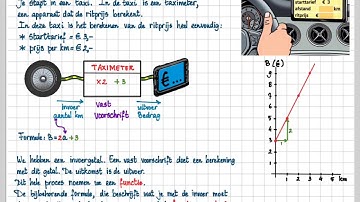 Je stapt in een taxi. In de taxi is een taximeter,
een apparaat dat de ritprijs berekent.
In deze taxi is het berekenen van de ritprijs heel eenvoudig:
* starttarief = € 3,-
* prijs per km = € 2,-
starttarief € 3
afstand km
ritprijs €
TAXIMETER
×2 +3
€
invoer
aantal km
vast
voorschrift
uitvoer
Bedrag
Formule: B=2a+3
B (€)
9
8
7
6
5
4
3
2
1
0
1 2 3 4 5 km
1
2
We hebben een invoergetal. Een vast voorschrift doet een berekening
met dit getal. De uitkomst is de uitvoer.
Dit hele proces noemen we een functie.
De bijbehorende formule, die beschrijft wat je met de invoer moet